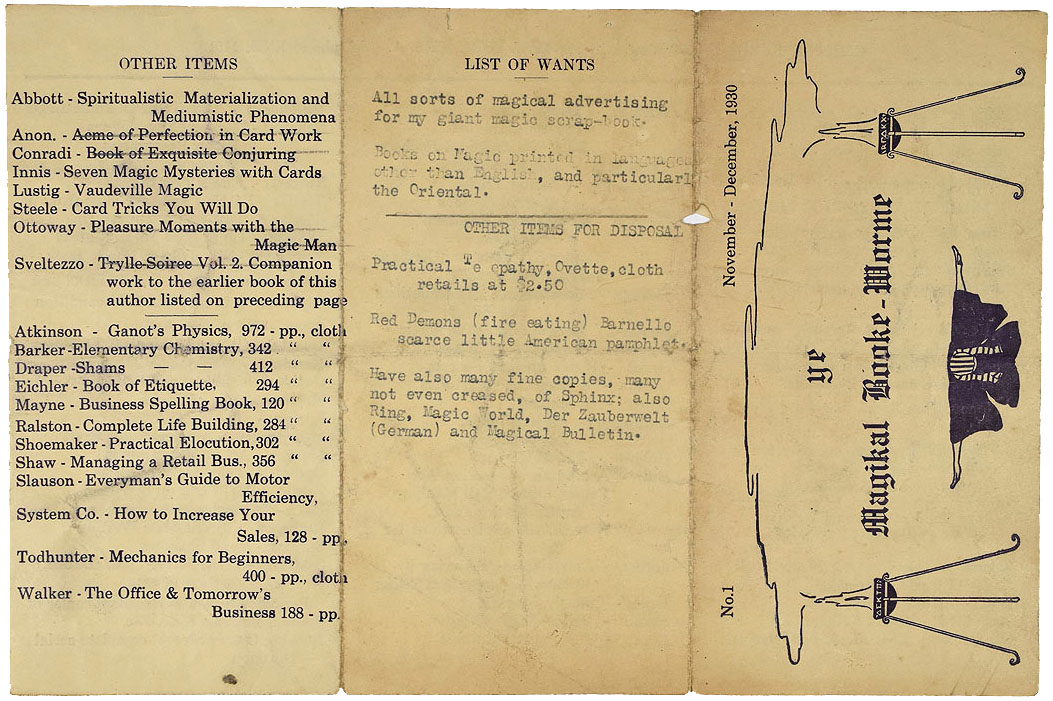 OTHER ITEMS
Abbott - Spiritualistic Materialization and
Mediumistic Phenomena
Anon. - Acme of Perfection in Card Work
Conradi - Book of Exquisite Conjuring
Innis - Seven Magic Mysteries with Cards
Lustig - Vaudeville Magic
Steele - Card Tricks You Will Do
Ottoway - Pleasure Moments with the
Magic Man
Sveltezzo - Trylle-Soiree Vol. 2. Companion
work to the earlier book of this
author listed on preceding page
Atkinson - Ganot's Physics, 972 - pp., cloth
Barker -Elementary Chemistry, 342 “ “
Draper -Shams — — 412 “ “
Eichler - Book of Etiquette, 294 “ “
Mayne - Business Spelling Book, 120 “ “
Ralston - Complete Life Building, 284 “ “
Shoemaker - Practical Elocution, 302 “ “
Shaw - Managing a Retail Bus., 356 “ “
Slauson - Everyman's Guide to Motor
Efficiency,
System Co. - How to Increase Your
Sales, 128 - pp.
Todhunter - Mechanics for Beginners,
400 - pp., cloth
Walker - The Office & Tomorrow's
Business 188 - pp.
LIST OF WANTS
All sorts of magical advertising
for my giant magic scrap-book.
Books on Magic printed in languages
other than English, and particularl
the Oriental.
OTHER ITEMS FOR DISPOSAL
Practical Te opathy, Ovette, cloth
retails at $2.50
Red Demons (fire eating) Barnello
scarce little American pamphlet.
Have also many fine copies, many
not even creased, of Sphinx; also
Ring, Magic World, Der Zauberwelt
(German) and Magical Bulletin.
No.1 November - December, 1930
ye
Magikal Booke-Worme